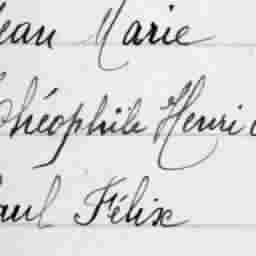 Jean Marie
Théophile Henri
Paul Félix